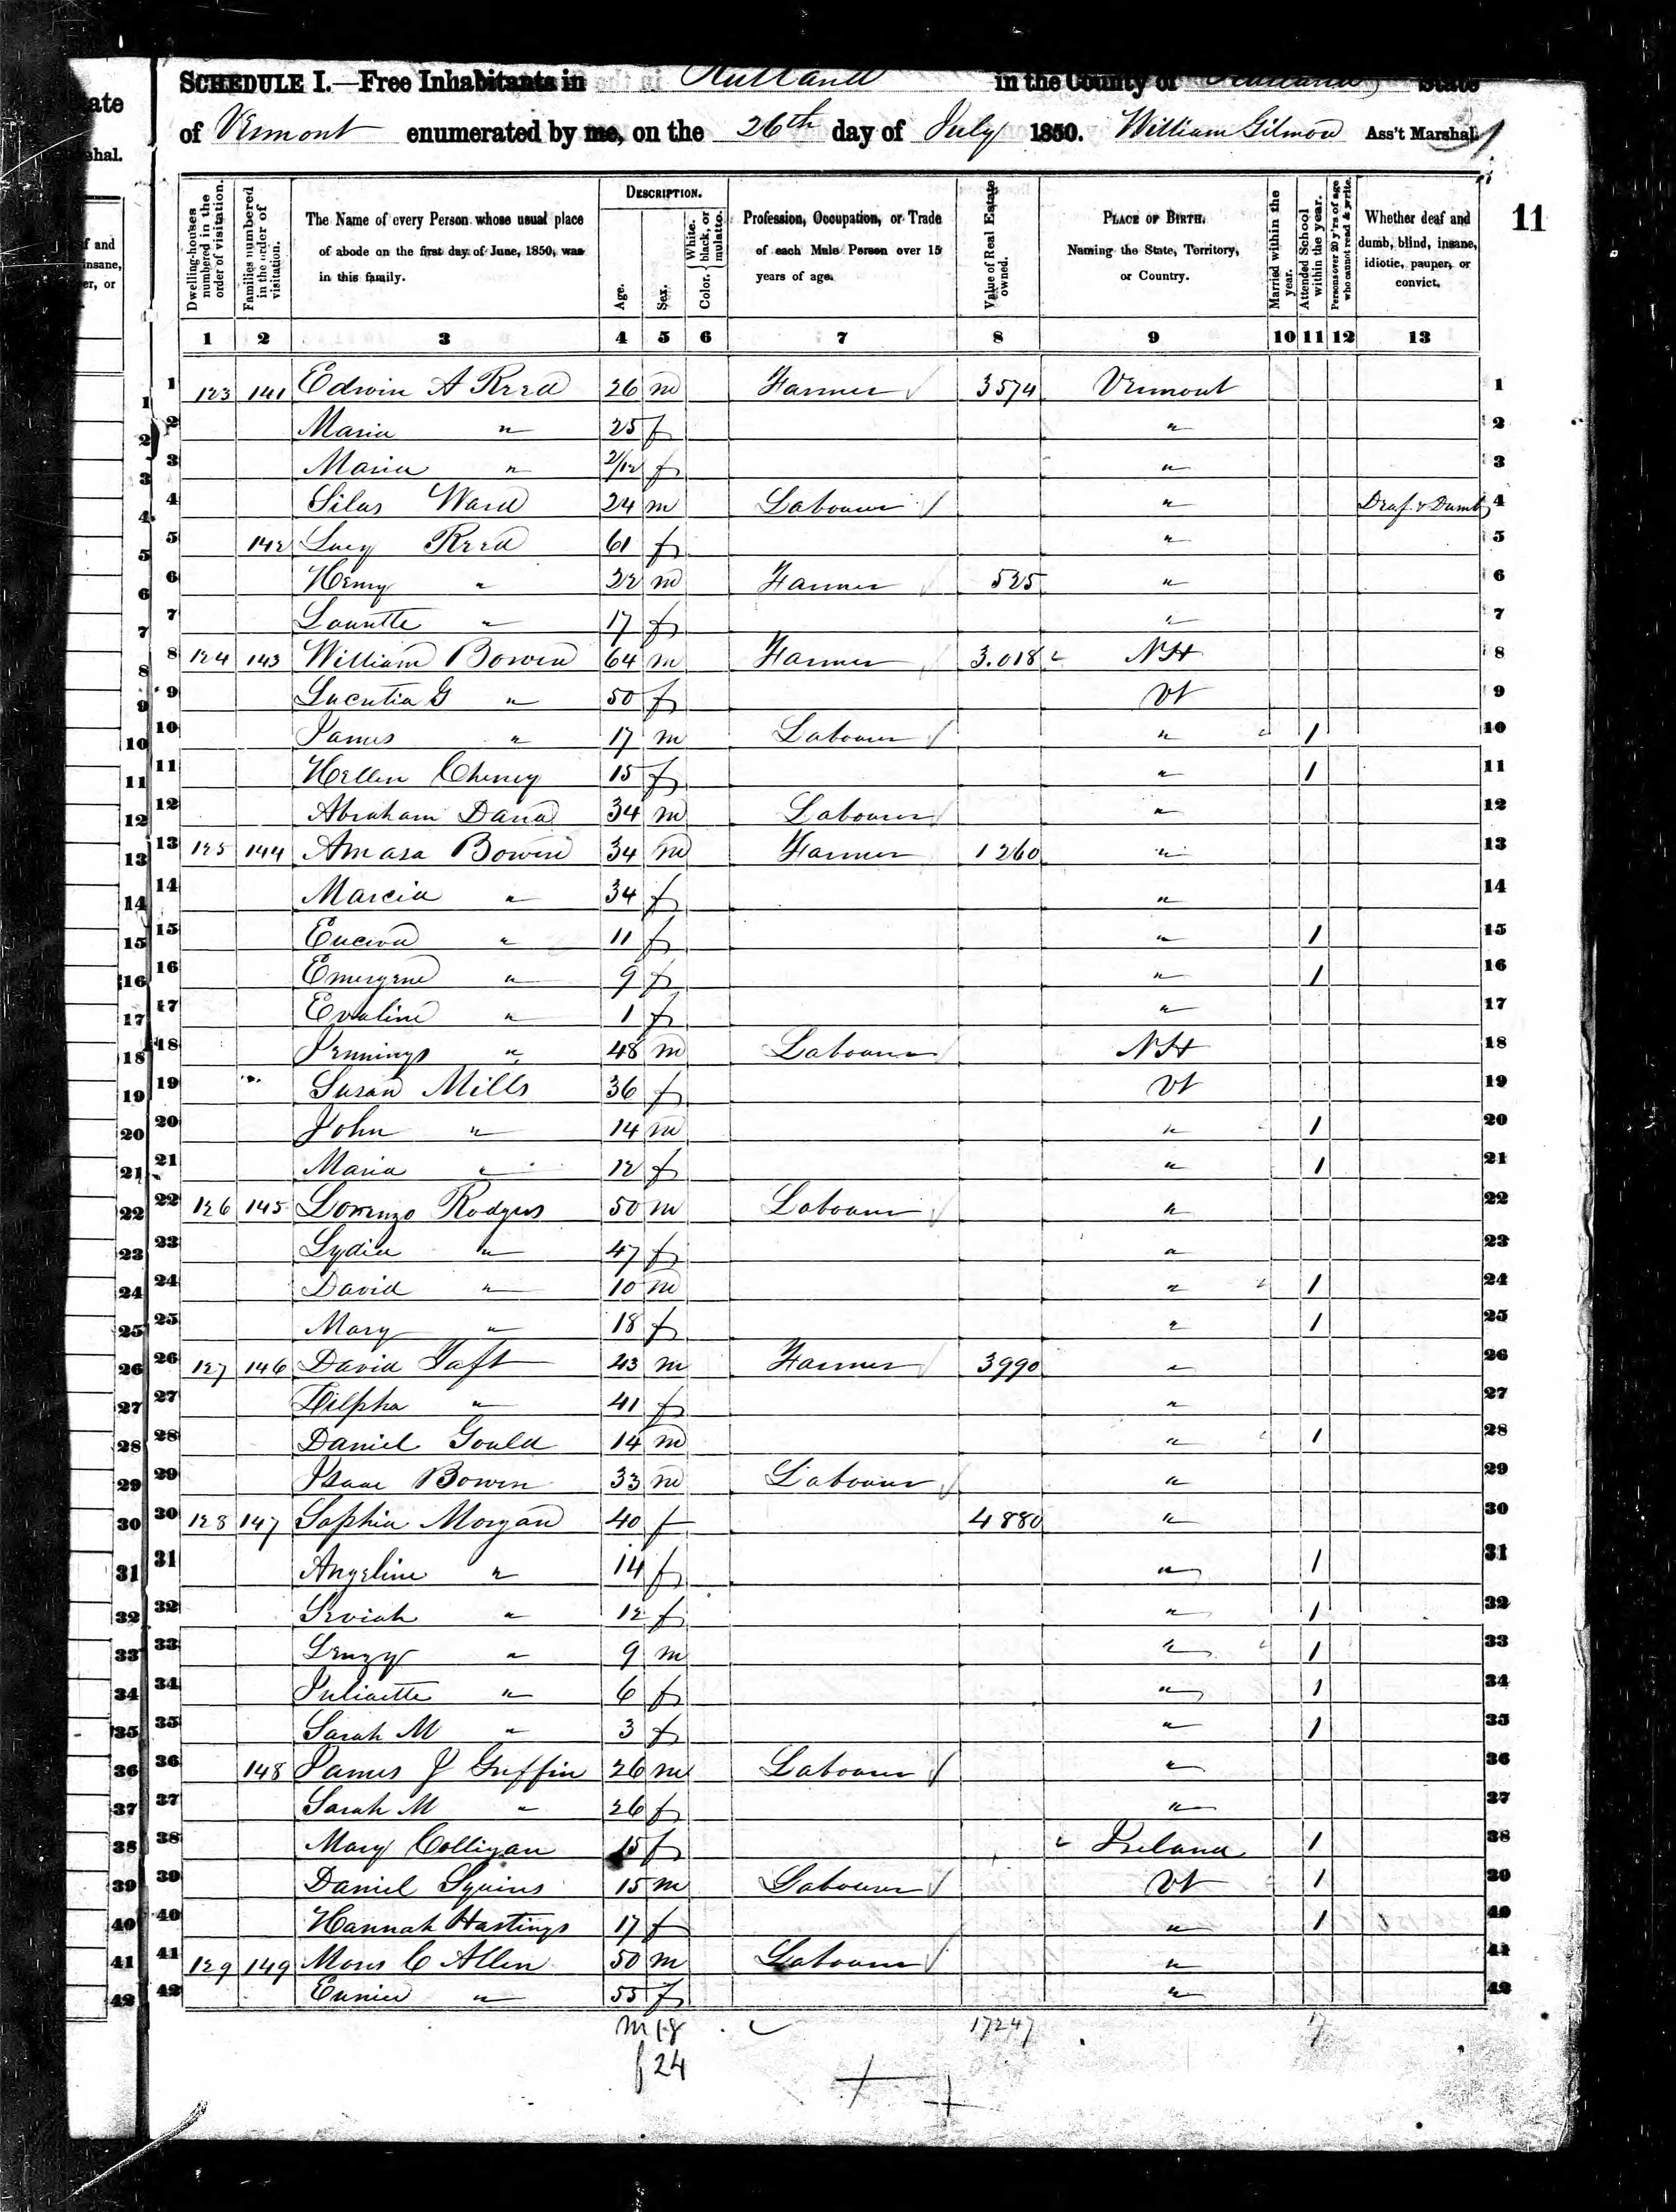 SCHEDULE I.—Free Inhabitants in Rutland in the County of Rutland State
of Vermont enumerated by me, on the 26th day of July 1850. William Gilmore Ass't Marshal.
11
Dwelling-houses numbered in the order of visitation. Families numbered in the order of visitation. The Name of every Person whose usual place of abode on the first day of June, 1850, was in this family. DESCRIPTION. Age. Sex. Color. { White, black, or mulatto. Profession, Occupation, or Trade of each Male Person over 15 years of age. Value of Real Estate owned. PLACE OF BIRTH. Naming the State, Territory, or Country. Married within the year. Attended School within the year. Persons over 20 y'rs of age who cannot read & write. Whether deaf and dumb, blind, insane, idiotic, pauper, or convict.
1 2 3 4 5 6 7 8 9 10 11 12 13
1 123 141 Edwin A Reed 26 m Farmer 3574 Vermont 1
2 Maria " 25 f " 2
3 Maria " 2/12 f " 3
4 Silas Ward 24 m Labourer " Deaf & Dumb 4
5 142 Lucy Reed 61 f " 5
6 Henry " 22 m Farmer 525 " 6
7 Laurette " 17 f " 7
8 124 143 William Bowen 64 m Farmer 3.018 NH 8
9 Lucretia G " 50 f Vt 9
10 James " 17 m Labourer " 1 10
11 Hellen Cheney 15 f " 1 11
12 Abraham Dana 34 m Labourer " 12
13 125 144 Amasa Bowen 34 m Farmer 1260 " 13
14 Marcia " 34 f " 14
15 " 11 f " 1 15
16 Emergene " 9 f " 1 16
17 Evaline " 1 f " 17
18 Jennings " 48 m Labourer NH 18
19 Susan Mills 36 f Vt 19
20 John " 14 m " 1 20
21 Maria " 12 f " 1 21
22 126 145 Lorenzo Rodgers 50 m Labourer " 22
23 Lydia " 47 f " 23
24 David " 10 m " 1 24
25 Mary " 18 f " 1 25
26 127 146 David Taft 43 m Farmer 3990 " 26
27 Dilpha " 41 f " 27
28 Daniel Gould 14 m " 1 28
29 Isaac Bowen 33 m Labourer " 29
30 128 147 Sophia Morgan 40 f 4880 " 30
31 Angeline " 14 f " 1 31
32 Seviah " 12 f " 1 32
33 " 9 m " 1 33
34 Juliaette " 6 f " 1 34
35 Sarah M " 3 f " 1 35
36 148 James J Griffin 26 m Labourer " 36
37 Sarah M " 26 f " 37
38 Mary Colligan 15 f Ireland 1 38
39 Daniel Squires 15 m Labourer Vt 1 39
40 Hannah Hastings 17 f " 1 40
41 129 149 Moses C Allen 50 m Labourer " 41
42 Eunice " 55 f " 42
m 18 17247 17
f 24